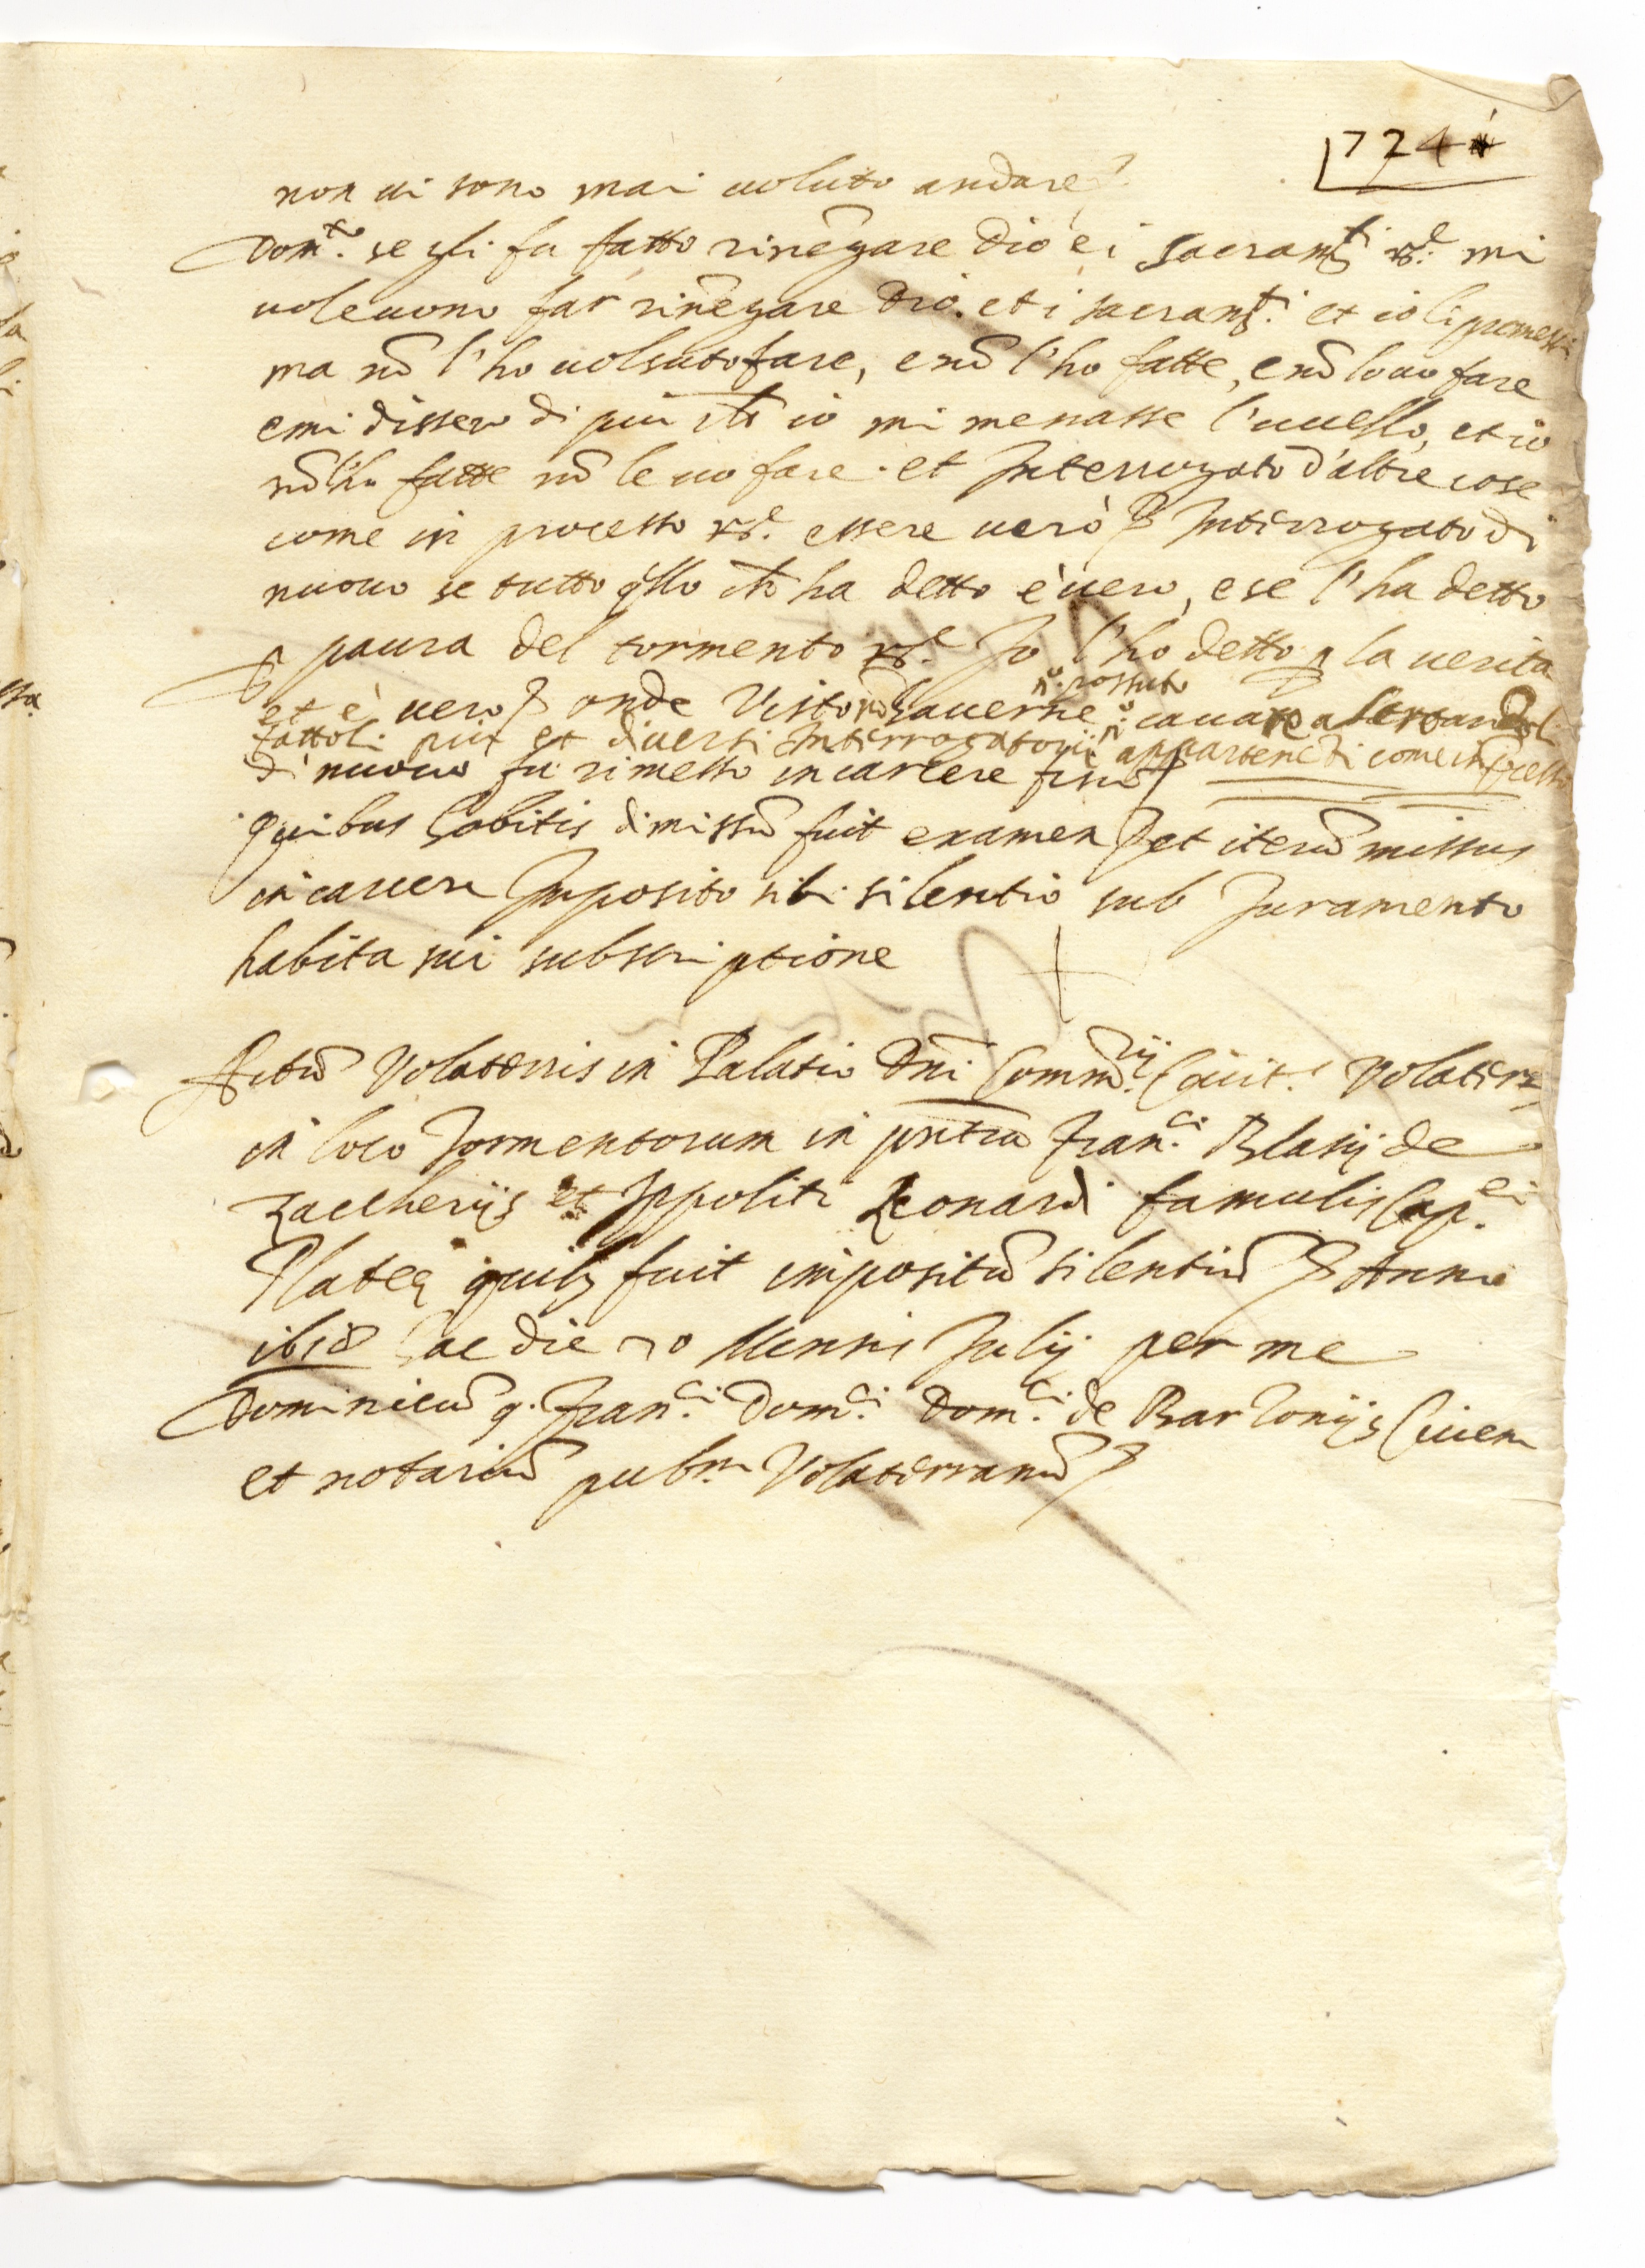 724
non ui sono mai uoluto andare
Dom.to se gli fu fatto rinegare Dio e i sacram.ti R.e mi
uoleuono far rinegare Dio. et i sacram.ti et io li promessi
ma nō l'ho uolsuto fare, e nō l'ho fatte, e nō lo uo fare
e mi dissero di piu ch io mi menasse l'uccello, et io
nō l'ho fatte nō le uo fare. et Interrogato d'altre cose
come in processo R.e essere uero Interrogato di
nuouo se tutto q̄llo ch ha detto è uero, e se l'ha detto
p paura del tormento R.e Io l'ho detto p la uerita
nō possuto
et è uero onde Visto nō hauerne cauare
fattoli piu et diuersi Interrogatorii appartenēti come in
di nuouo fu rimesso in carcere
quibus habitis dimissū fuit examen et iterū missus
in carcere Imposito sibi silentio sub Iuramento
habita sui subscriptione
Actū Volaterris in Palatio Dni Comm.rij Ciuit.s Volaterr
in loco Tormentorum in pn̄tia Fran.ci Blasij de
Zaccherijs et Ippoliti Leonardi famulis Cap.ei
Plateę quib fuit impositū silentiū Anno
ibid hac die 20 Mensis Julij per me
Dominicū q. Fran.ci Dom.ci Dom.ci de Bartonijs Ciuem
et notariū pub.m Volaterranū